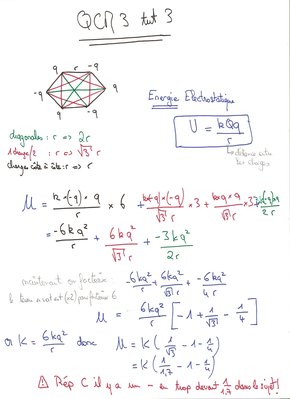 QCM 3 tut 3
-q
q
-q
q
-q
q
Energie Electrostatique
U = kQq / r
→ distance entre les charges
diagonales : r ⇔ 2r
1 charge/2 : r ⇔ √3 r
charges côte à côte : r ⇔ r
U = k×(-q)×q / r × 6 + k(-q)×(-q) / √3 r × 3 + kq×q / √3 r × 3 + k(-q)×q / 2r × 3
= -6kq² / r + 6kq² / √3 r + -3kq² / 2r
maintenant on factorise : -6kq² / r + 6kq² / √3 r + -6kq² / 4r
(×2) 6
U = 6kq² / r [ -1 + 1/√3 - 1/4 ]
or K = 6kq² / r donc U = K ( 1/√3 - 1 - 1/4 )
= K ( 1/1,7 - 1 - 1/4 )
⚠ Rép C il y a un - en trop devant 1/1,7 dans le sujet !